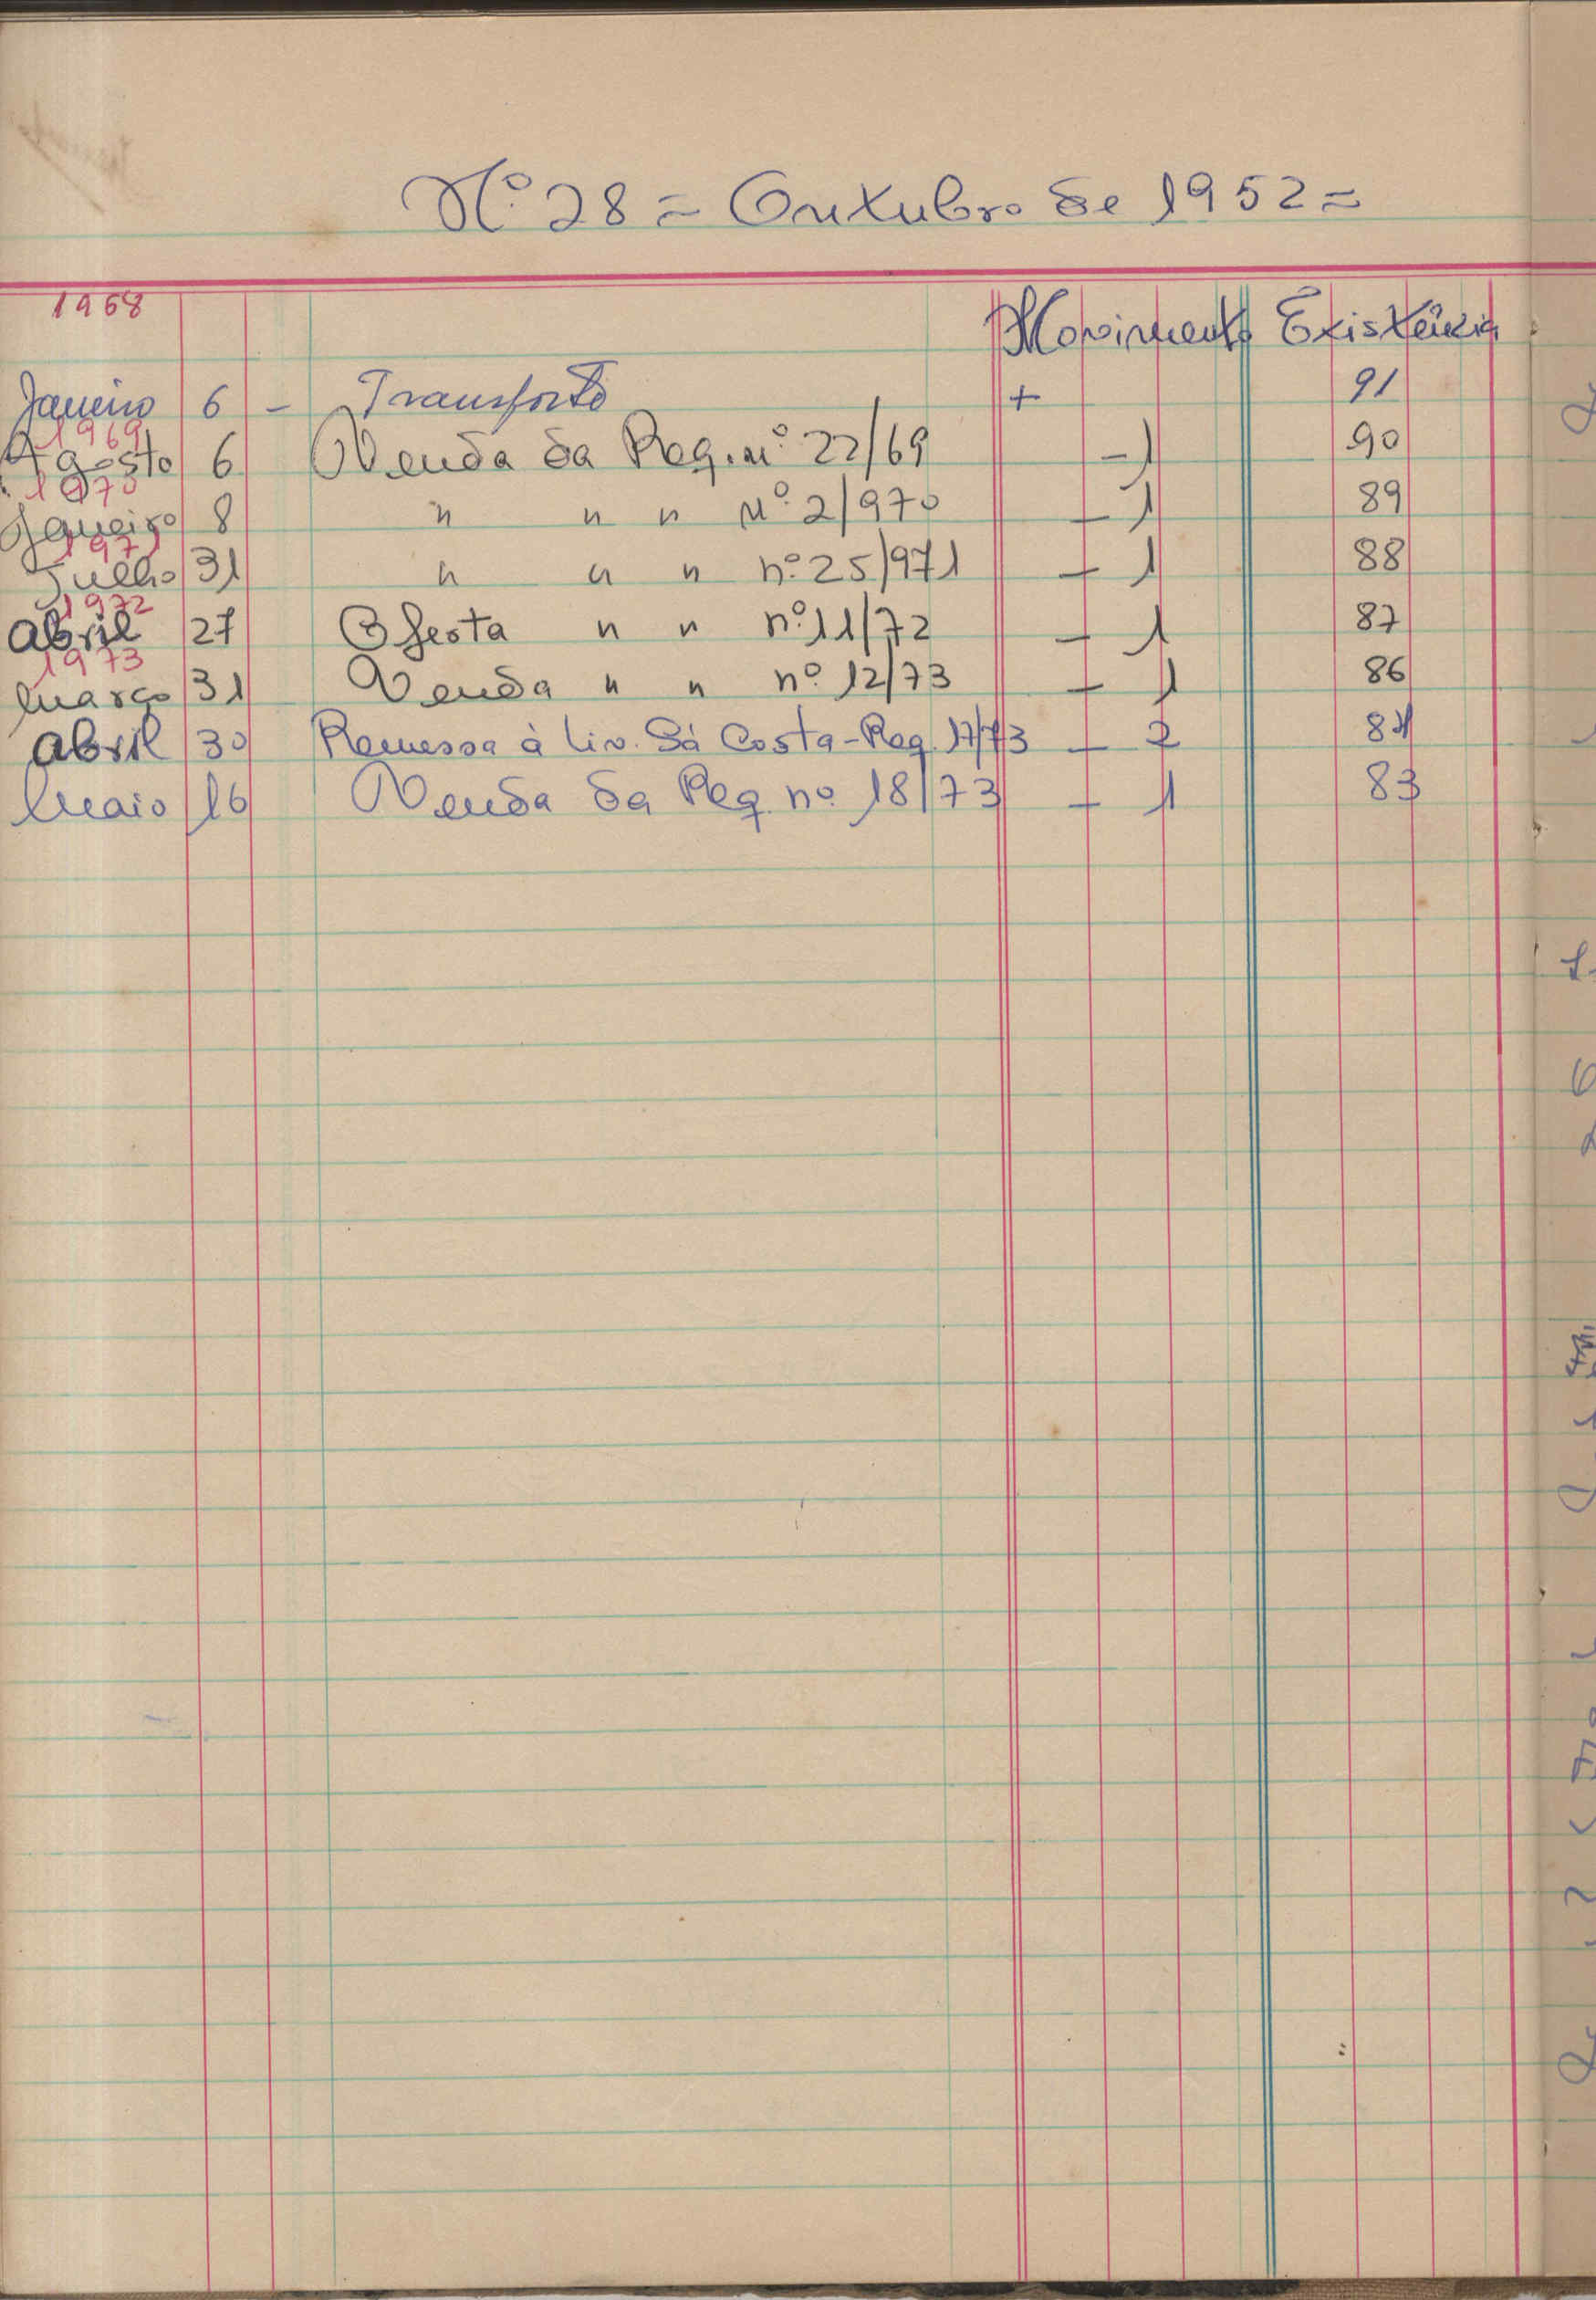 Nº 28 = Outubro de 1952 =
1968
Movimento Existência
Janeiro 6 - Transporte + 91
1969
Agosto 6 Venda da Req. nº 22/69 - 1 90
1970
Janeiro 8 " " " Nº 2/970 - 1 89
1971
Julho 31 " " " nº 25/971 - 1 88
1972
Abril 27 Oferta " " nº 11/72 - 1 87
1973
Março 31 Venda " " nº 12/73 - 1 86
Abril 30 Remessa à Liv. Sá Costa - Req. 17/73 - 2 84
Maio 16 Venda da Req. nº 18/73 - 1 83